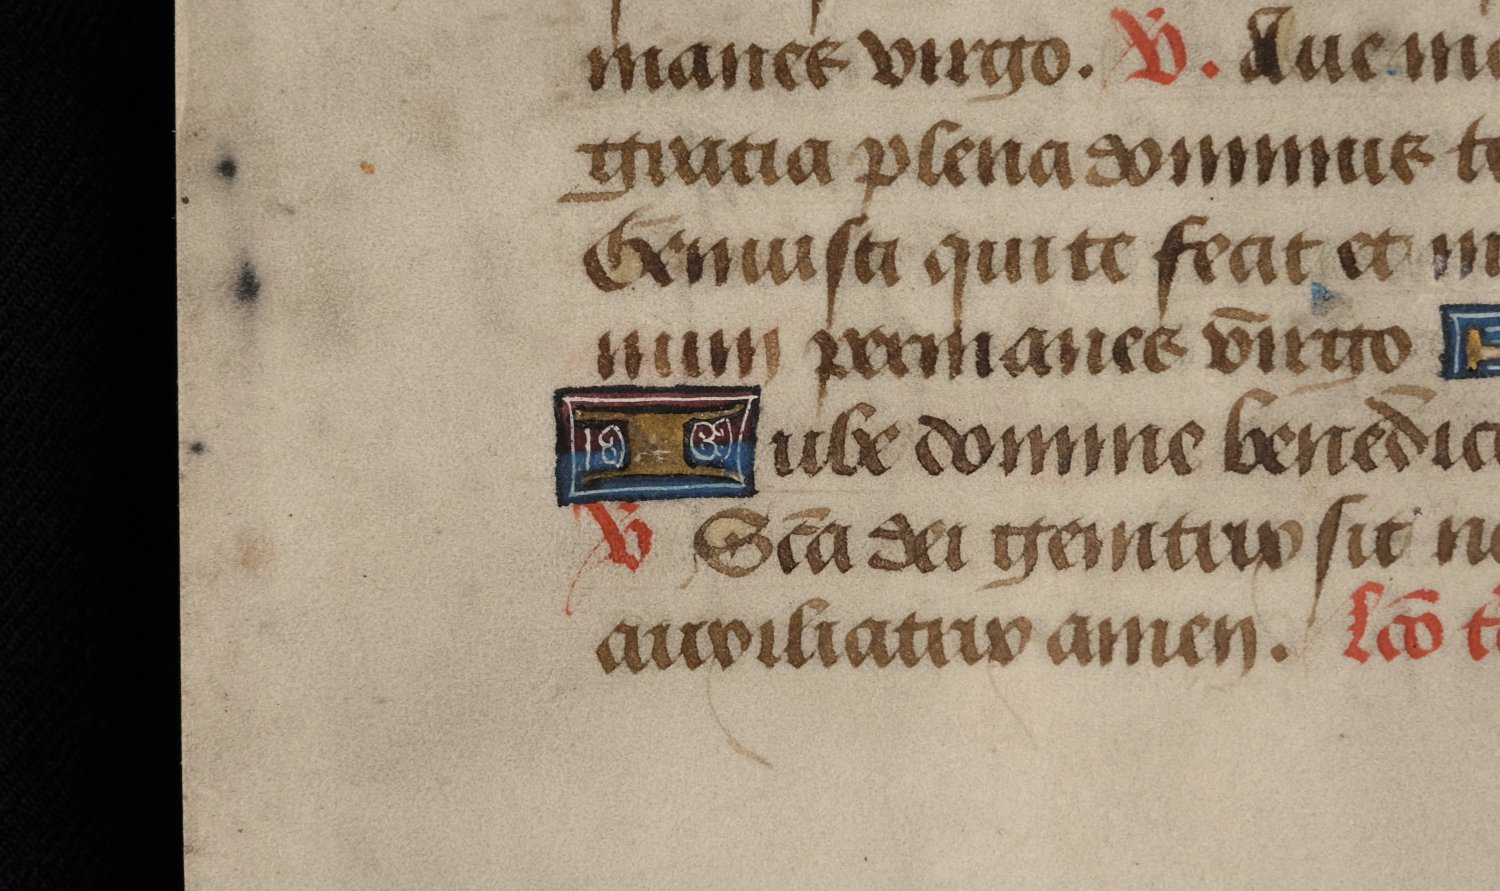 manes virgo. V. Aue ma
gratia plena dominus te
Genuisti qui te fecit et in
num permanes v̄irgo
Iube domine bened̄ic
V S̄c̄a dei genitrix sit no
auxiliatrix amen. Lc̄o